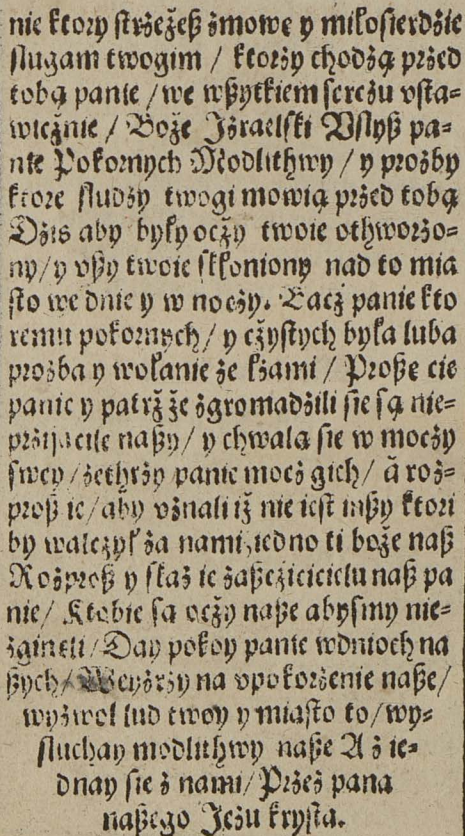 nie ktory strżeżeß żmowe y miłosierdżie
slugam twogim / ktorży chodżą prżed
tobą panie / we wßytkiem sercżu vsta⸗
wiecżnie / Boże Jżraelski Vslyß pa⸗
nie Pokornych Modlithwy / y prożby
ktore sludży twogi mowią prżed tobą
Dżis aby były ocży twoie othworżo⸗
ny / y vßy twoie skłoniony nad to mia
sto we dnie y w nocży. Bacż panie kto
remu pokornych / y cżystych była luba
prożba y wołanie że łżami / Proßę cie
panie y patrż że żgromadżili sie są nie⸗
prżijaciele naßy / y chwalą sie w mocży
swey / żethrży panie mocż gich / á roż⸗
proß ie / aby vżnali iż nie iest inßy ktori
by walcżył ża nami, iedno ti boże naß
Rożproß y skaż ie żaßcżicicielu naß pa
nie / Ktobie są ocży naße abysmy nie⸗
żgineli / Day pokoy panie wdnioch na
ßych / Weyżrży na vpokorżenie naße /
wyżwol lud twoy y miasto to / wy⸗
sluchay modlithwy naße A ż ie⸗
dnay sie ż nami / Prżeż pana
naßego Jeżu krysta.